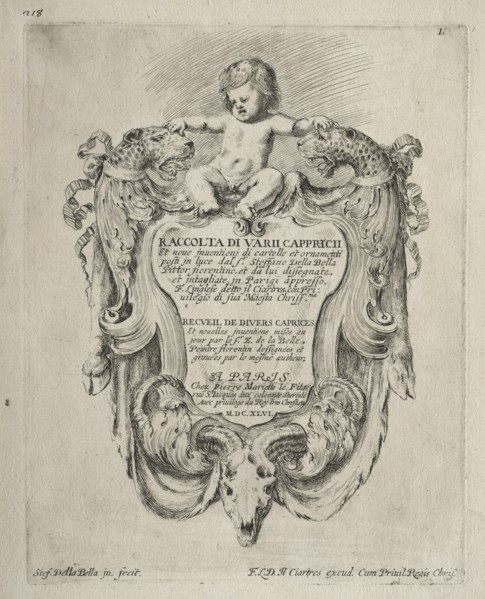 218
1.
RACCOLTA DI VARII CAPPRICII
Et noue inuentionj di cartelle et ornamenti
posti in luce dal s.r Steffano Della Bella
Pittor fiorentino. et da lui dissegnate.
et intagliate, in Parigi appresso.
F. L'anglese detto il Ciartres, con Pri
uilegio di sua Maesta Chriss.ma
RECVEIL DE DIVERS CAPRICES
Et nouelles inuentions mises au
jour par le s.r E. de la Belle.
Peintre florentin dessignées et
grauées par le mesme autheur.
A PARIS
Chez Pierre Mariette le Filz,
rüe S. Iacques aux colonnes d'hercule
Auec priuilege du Roy tres Chrestien
M.DC.XLVI.
Stef. Della Bella jn. fecit.
F.L.D. Il Ciartres excud. Cum Priuil. Regis Chris.